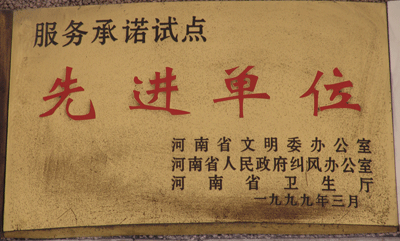 服务承诺试点
先进单位
河南省文明委办公室
河南省人民政府纠风办公室
河南省卫生厅
一九九九年三月